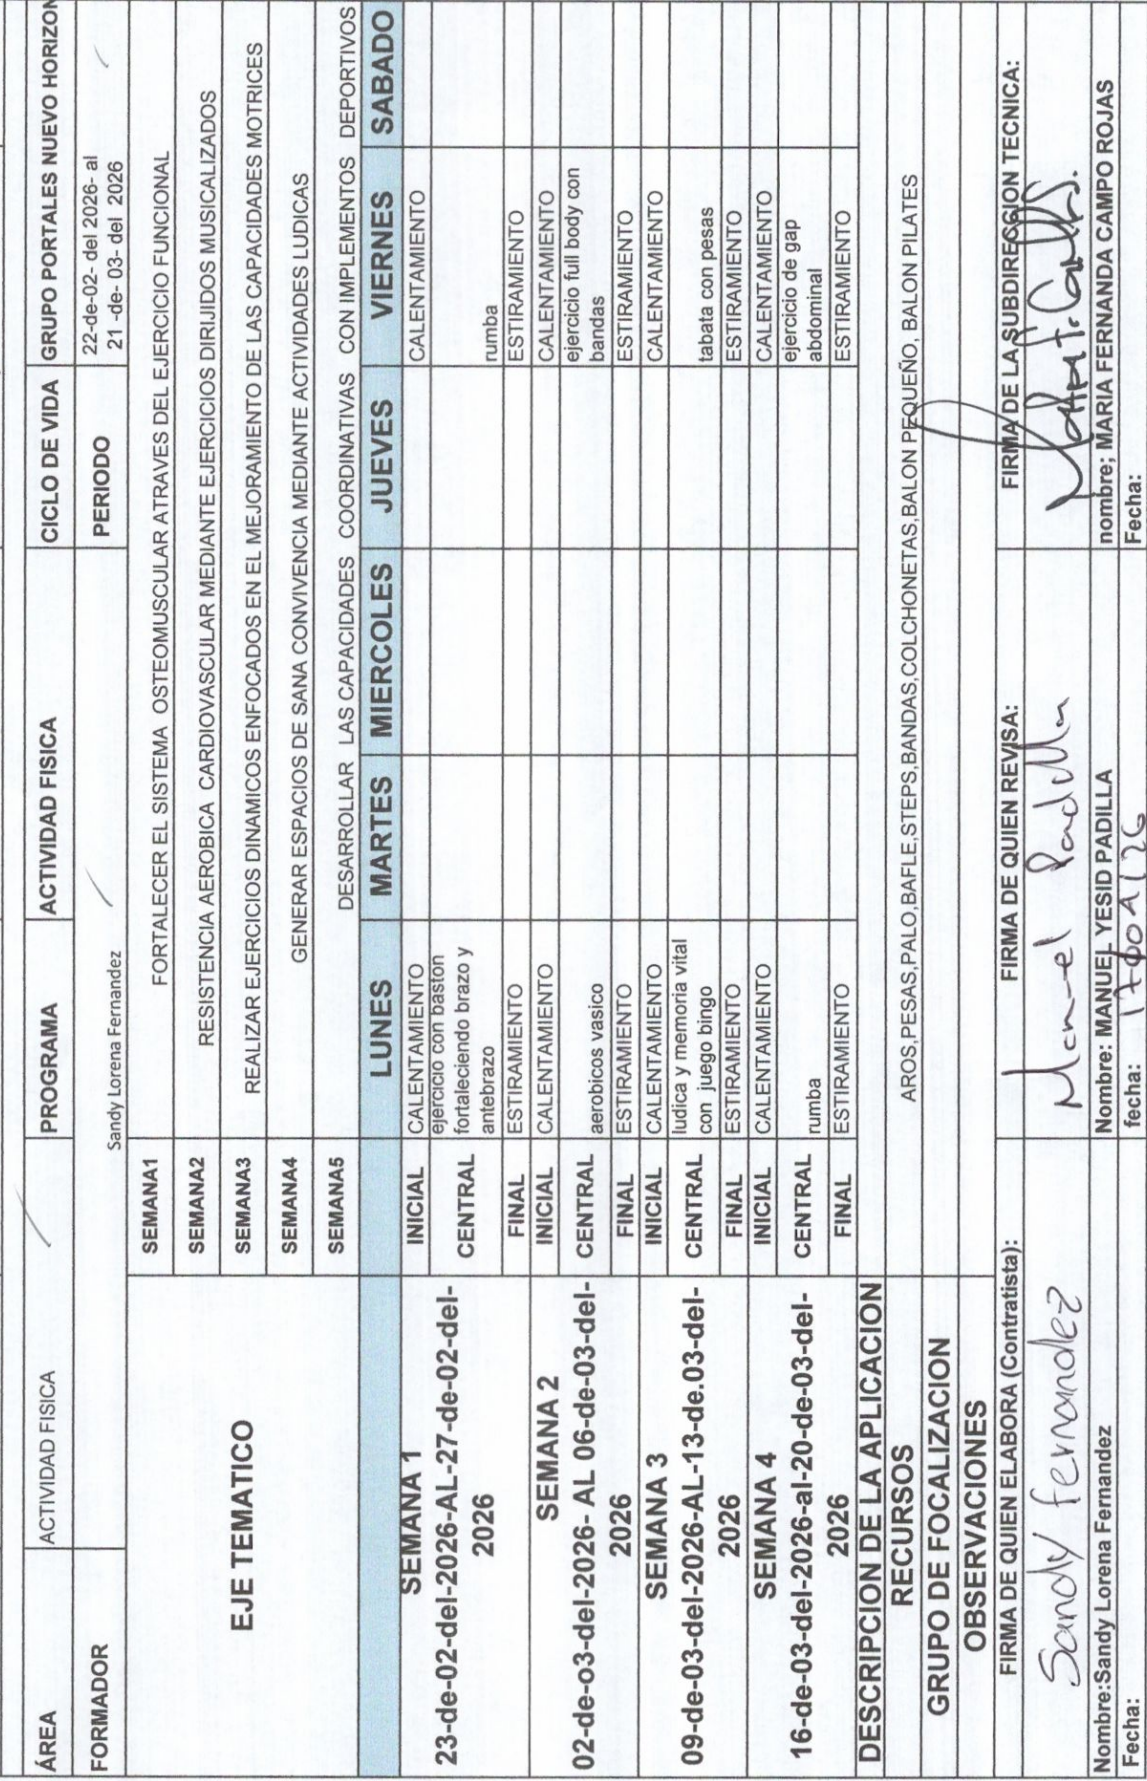 ÁREA ACTIVIDAD FISICA PROGRAMA ACTIVIDAD FISICA CICLO DE VIDA GRUPO PORTALES NUEVO HORIZON
FORMADOR Sandy Lorena Fernandez PERIODO 22-de-02- del 2026- al
21 -de- 03- del 2026
EJE TEMATICO
SEMANA1 FORTALECER EL SISTEMA OSTEOMUSCULAR ATRAVES DEL EJERCICIO FUNCIONAL
SEMANA2 RESISTENCIA AEROBICA CARDIOVASCULAR MEDIANTE EJERCICIOS DIRIJIDOS MUSICALIZADOS
SEMANA3 REALIZAR EJERCICIOS DINAMICOS ENFOCADOS EN EL MEJORAMIENTO DE LAS CAPACIDADES MOTRICES
SEMANA4 GENERAR ESPACIOS DE SANA CONVIVENCIA MEDIANTE ACTIVIDADES LUDICAS
SEMANA5 DESARROLLAR LAS CAPACIDADES COORDINATIVAS CON IMPLEMENTOS DEPORTIVOS
LUNES MARTES MIERCOLES JUEVES VIERNES SABADO
SEMANA 1
23-de-02-del-2026-AL-27-de-02-del-
2026
INICIAL CALENTAMIENTO CALENTAMIENTO
CENTRAL ejercicio con baston
fortaleciendo brazo y
antebrazo rumba
FINAL ESTIRAMIENTO ESTIRAMIENTO
SEMANA 2
02-de-o3-del-2026- AL 06-de-03-del-
2026
INICIAL CALENTAMIENTO CALENTAMIENTO
CENTRAL aerobicos vasico ejercicio full body con
bandas
FINAL ESTIRAMIENTO ESTIRAMIENTO
SEMANA 3
09-de-03-del-2026-AL-13-de.03-del-
2026
INICIAL CALENTAMIENTO CALENTAMIENTO
CENTRAL ludica y memoria vital
con juego bingo tabata con pesas
FINAL ESTIRAMIENTO ESTIRAMIENTO
SEMANA 4
16-de-03-del-2026-al-20-de-03-del-
2026
INICIAL CALENTAMIENTO CALENTAMIENTO
CENTRAL rumba ejercicio de gap
abdominal
FINAL ESTIRAMIENTO ESTIRAMIENTO
DESCRIPCION DE LA APLICACION
RECURSOS AROS,PESAS,PALO,BAFLE,STEPS,BANDAS,COLCHONETAS,BALON PEQUEÑO, BALON PILATES
GRUPO DE FOCALIZACION
OBSERVACIONES
FIRMA DE QUIEN ELABORA (Contratista): FIRMA DE QUIEN REVISA: FIRMA DE LA SUBDIRECCION TECNICA:
Sandy Fernandez Manuel Padilla
Nombre:Sandy Lorena Fernandez Nombre: MANUEL YESID PADILLA nombre; MARIA FERNANDA CAMPO ROJAS
Fecha: fecha: Fecha: